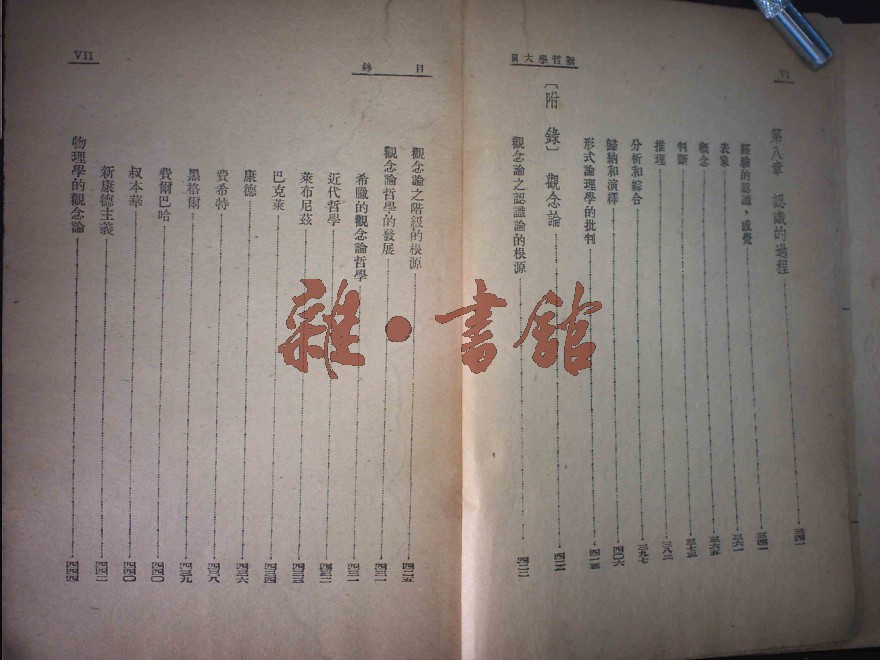 新哲學大綱
VI
第八章 認識的過程 三四一
經驗的認識，感覺 三四一
表象 三六一
概念 三六五
判斷 三七三
推理 三八二
分析和綜合 三九七
歸納和演繹 四〇六
形式論理學的批判 四一五
〔附錄〕 觀念論 四二二
觀念論之認識論的根源 四二二
目錄
VII
觀念論之階級的根源 四二五
觀念論哲學的發展 四三一
希臘的觀念論哲學 四三一
近代哲學
萊布尼茲 四三三
巴克萊 四三四
康德 四三六
費希特 四三八
黑格爾 四三九
費爾巴哈 四四〇
叔本華 四四〇
新康德主義 四四二
物理學的觀念論 四四四
雜·書館